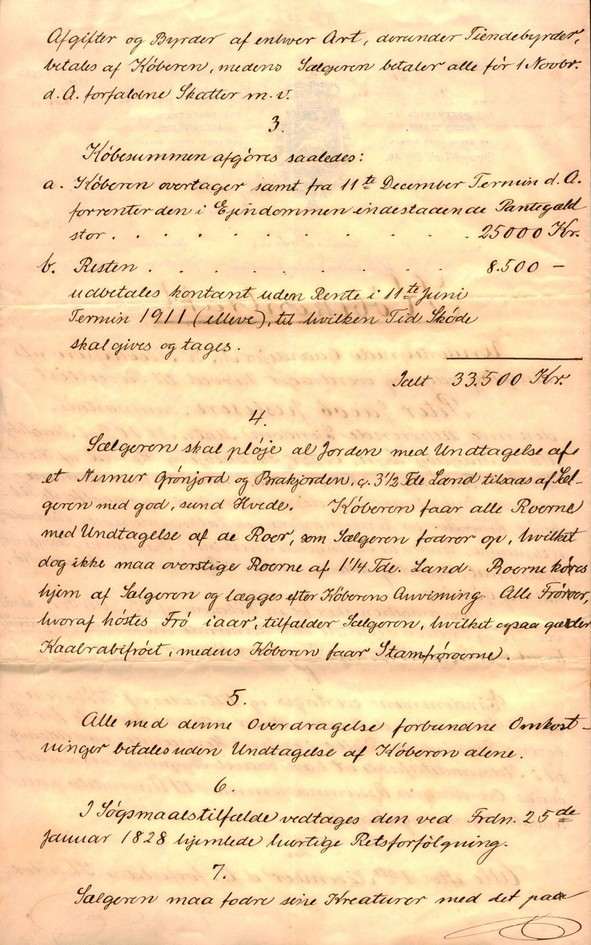 Afgifter og Byrder af enhver Art, derunder Tiendebyrder,
betales af Köberen, medens Sælgeren betaler alle för 1 Novbr.
d. A. forfaldne Skatter m. v.
3.
Köbesummen afgöres saaledes:
a. Köberen overtager samt fra 11te December Termin d. A.
forrenter den i Ejendommen indestaaende Pantegæld
stor . . . . . . . . 25000 Kr.
b. Resten . . . . . . . 8.500 —
udbetales kontant uden Rente i 11te Juni
Termin 1911 (elleve), til hvilken Tid Sköde
skal gives og tages.
Ialt 33.500 Kr.
4.
Sælgeren skal plöje al Jorden med Undtagelse af
et Numer Grönjord og Brakjorden, c. 3 1/2 Tde Land tilsaas af Sæl-
geren med god, sund Hvede. Köberen faar alle Roerne
med Undtagelse af de Roer, som Sælgeren fodrer op, hvilket
dog ikke maa overstige Roerne af 1 1/4 Tde. Land. Roerne köres
hjem af Sælgeren og lægges efter Köberens Anvisning. Alle Fröroer,
hvoraf höstes Frö iaar, tilfalder Sælgeren, hvilket ogsaa gælder
Kaalrabifröet, medens Köberen faar Stamfröroerne.
5.
Alle med denne Overdragelse forbundne Omkost-
ninger betales uden Undtagelse af Köberen alene.
6.
I Sögsmaalstilfælde vedtages den ved Frdn. 25de
Januar 1828 hjemlede hurtige Retsforfölgning.
7.
Sælgeren maa fodre sine Kreaturer med det paa